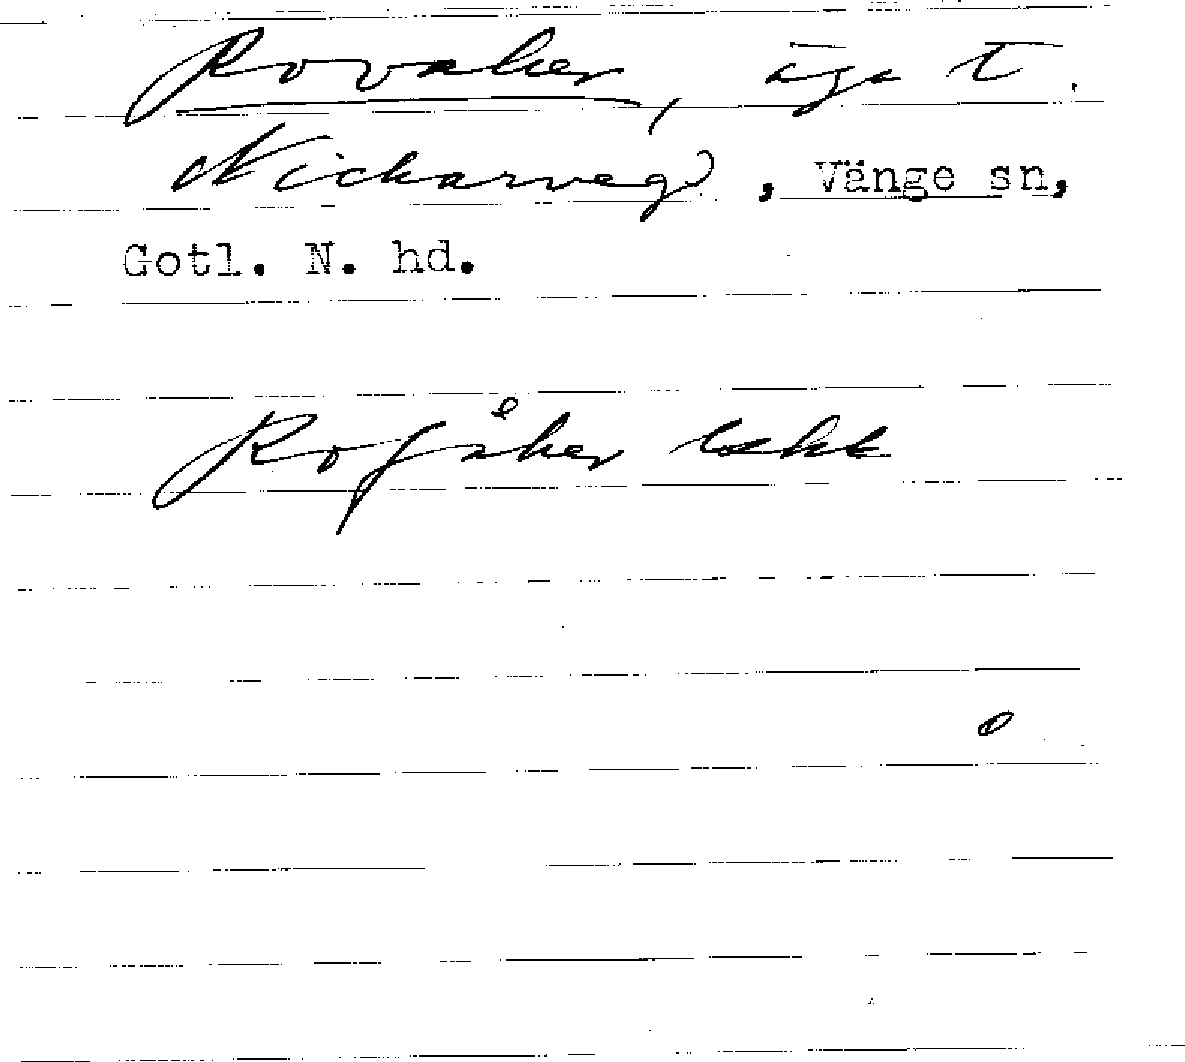 Rovaker, äga t.
Nickarvegd, Vänge sn,
Gotl. N. hd.
Rofåker